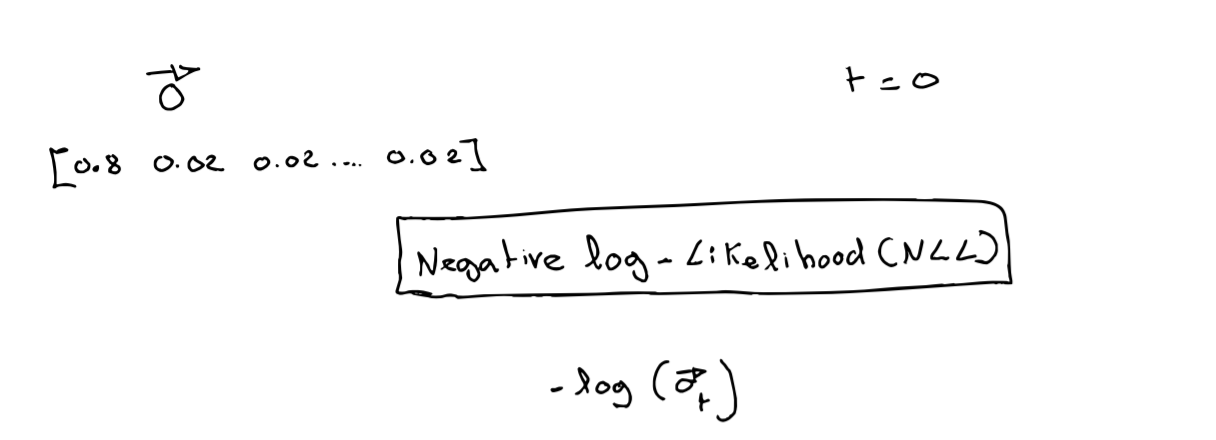 o⃗ t = 0
[0.8 0.02 0.02 .... 0.02]
Negative log - Likelihood (NLL)
- log (o⃗ₜ)